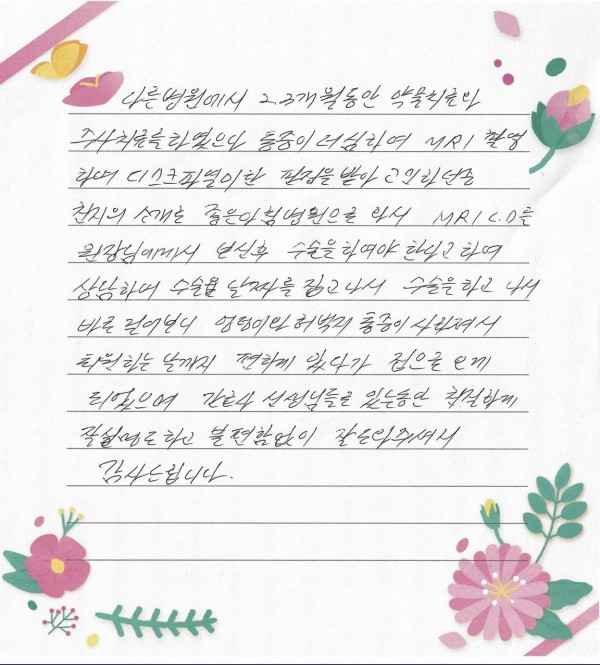 다른병원에서 2.3개월동안 약물치료와
주사치료를하였으나 통증이 더심하여 MRI 촬영
하여 디스크파열이란 판정을 받아 고민하던중
친지의 소개로 좋은아침병원으로 와서 MRI C.D를
원장님에게서 보신후 수술을하여야 한다고하여
상담하여 수술 날짜를 잡고나서 수술을하고 나서
바로 걸어보니 엉덩이와 허벅지 통증이 사라져서
퇴원하는 날까지 편하게 있다가 집으로 오게
되었으며 간호사 선생님들도 있는동안 친절하게
잘설명도하고 불편함없이 잘도와주셔서
감사드립니다.